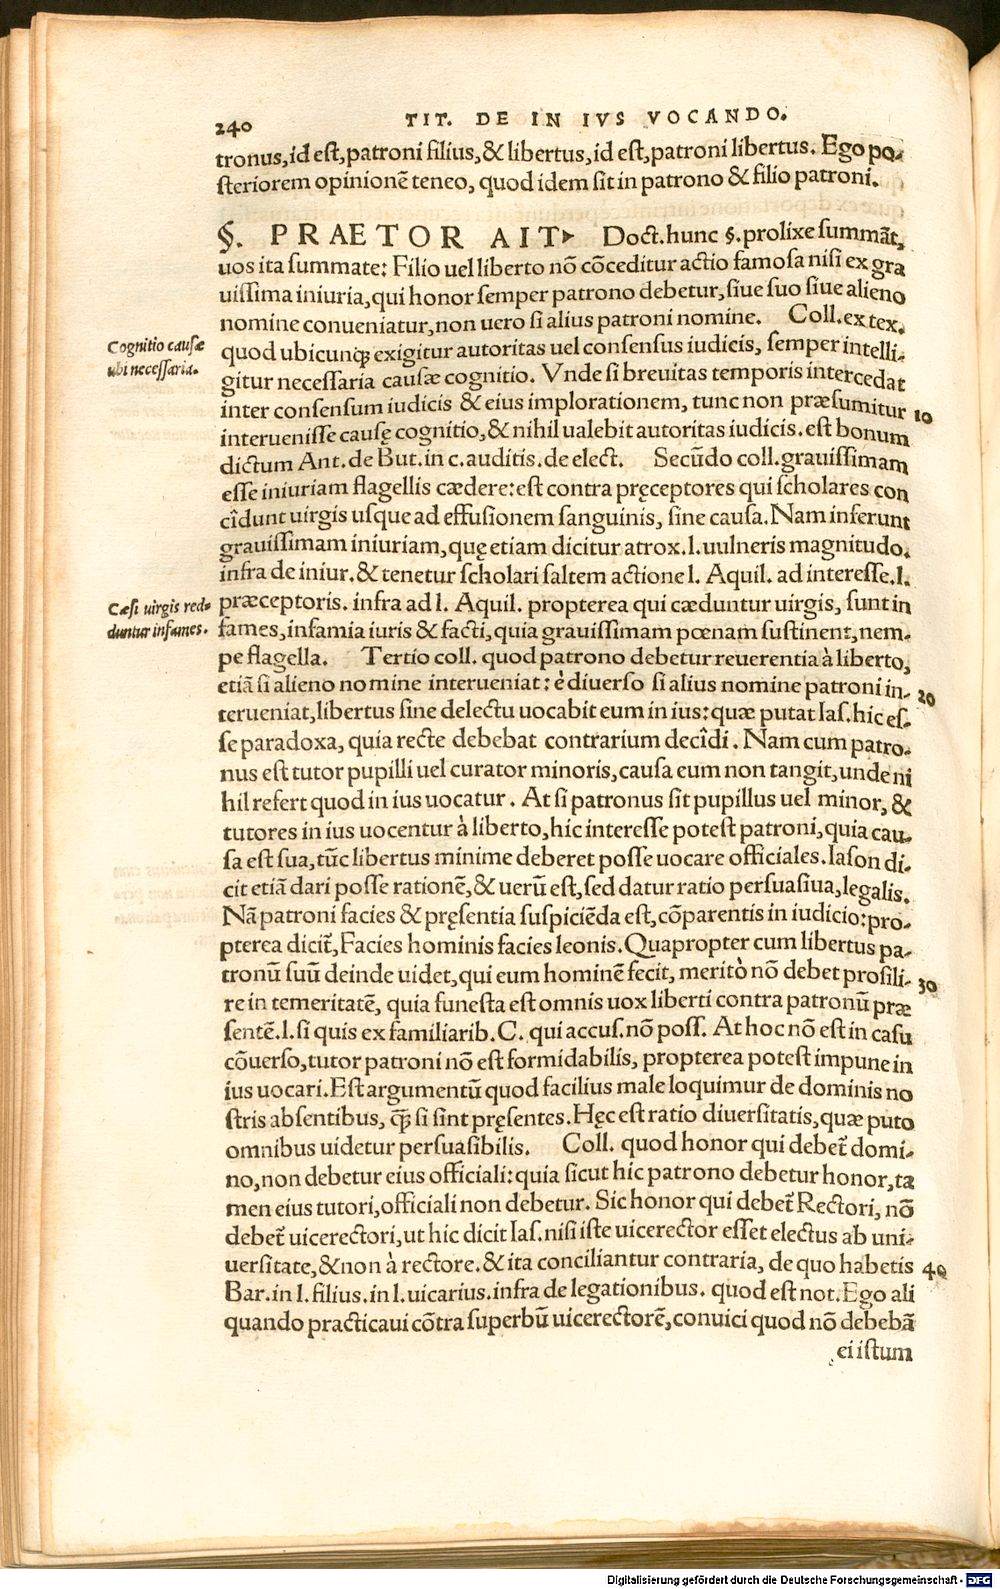 240
TIT. DE IN IVS VOCANDO.
tronus, id est, patroni filius, & libertus, id est, patroni libertus. Ego po-
steriorem opinionē teneo, quod idem sit in patrono & filio patroni.
§. PRAETOR AIT Doct. hunc §. prolixe summāt,
uos ita summate: Filio uel liberto nō cōceditur actio famosa nisi ex gra
uissima iniuria, qui honor semper patrono debetur, siue suo siue alieno
nomine conueniatur, non uero si alius patroni nomine. Coll. ex tex.
Cognitio causæ
ubi necessaria.
quod ubicunqꝫ exigitur autoritas uel consensus iudicis, semper intelli-
gitur necessaria causæ cognitio. Vnde si breuitas temporis intercedat
inter consensum iudicis & eius implorationem, tunc non præsumitur 10
interuenisse causę cognitio, & nihil ualebit autoritas iudicis. est bonum
dictum Ant. de But. in c. auditis. de elect. Secūdo coll. grauissimam
esse iniuriam flagellis cædere: est contra pręceptores qui scholares con
cîdunt uirgis usque ad effusionem sanguinis, sine causa. Nam inferunt
grauissimam iniuriam, quę etiam dicitur atrox. l. uulneris magnitudo.
infra de iniur. & tenetur scholari saltem actione l. Aquil. ad interesse. l.
Cæsi uirgis red-
duntur infames.
præceptoris. infra ad l. Aquil. propterea qui cæduntur uirgis, sunt in
fames, infamia iuris & facti, quia grauissimam pœnam sustinent, nem-
pe flagella. Tertio coll. quod patrono debetur reuerentia à liberto,
etiā si alieno nomine interueniat: è diuerso si alius nomine patroni in- 20
terueniat, libertus sine delectu uocabit eum in ius: quæ putat Ias. hic es-
se paradoxa, quia recte debebat contrarium decîdi. Nam cum patro-
nus est tutor pupilli uel curator minoris, causa eum non tangit, unde ni
hil refert quod in ius uocatur. At si patronus sit pupillus uel minor, &
tutores in ius uocentur à liberto, hic interesse potest patroni, quia cau-
sa est sua, tūc libertus minime deberet posse uocare officiales. Iason di-
cit etiā dari posse rationē, & uerū est, sed datur ratio persuasiua, legalis.
Nā patroni facies & pręsentia suspiciēda est, cōparentis in iudicio: pro-
pterea dicit̄, Facies hominis facies leonis. Quapropter cum libertus pa-
tronū suū deinde uidet, qui eum hominē fecit, meritò nō debet prosili- 30
re in temeritatē, quia funesta est omnis uox liberti contra patronū præ
sentē. l. si quis ex familiarib. C. qui accus. nō poss. At hoc nō est in casu
cōuerso, tutor patroni nō est formidabilis, propterea potest impune in
ius uocari. Est argumentū quod facilius male loquimur de dominis no
stris absentibus, qꝫ̄ si sint pręsentes. Hęc est ratio diuersitatis, quæ puto
omnibus uidetur persuasibilis. Coll. quod honor qui debet̄ domi-
no, non debetur eius officiali: quia sicut hic patrono debetur honor, ta
men eius tutori, officiali non debetur. Sic honor qui debet̄ Rectori, nō
debet̄ uicerectori, ut hic dicit Ias. nisi iste uicerector esset electus ab uni-
uersitate, & non à rectore. & ita conciliantur contraria, de quo habetis 40
Bar. in l. filius. in l. uicarius. infra de legationibus. quod est not. Ego ali
quando practicaui cōtra superbū uicerectorē, conuici quod nō debebā
ei istum
Digitalisierung gefördert durch die Deutsche Forschungsgemeinschaft - DFG